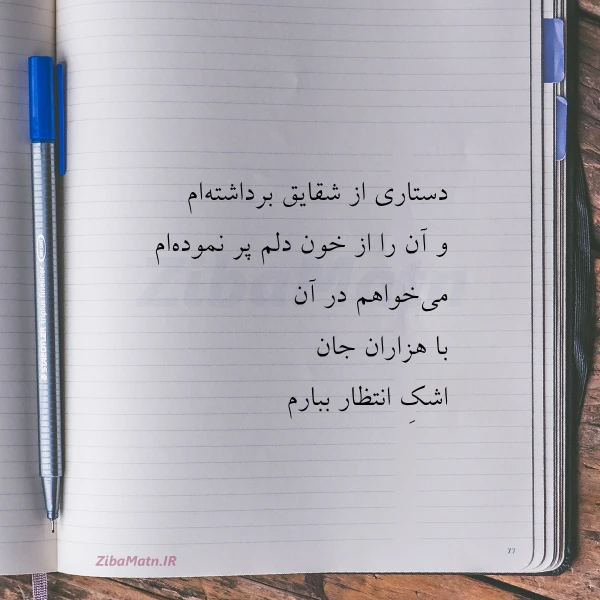 دستاری از شقایق برداشته‌ام
و آن را از خون دلم پر نموده‌ام
می‌خواهم در آن
با هزاران جان
اشکِ انتظار ببارم
ZibaMatn
ZibaMatn.IR